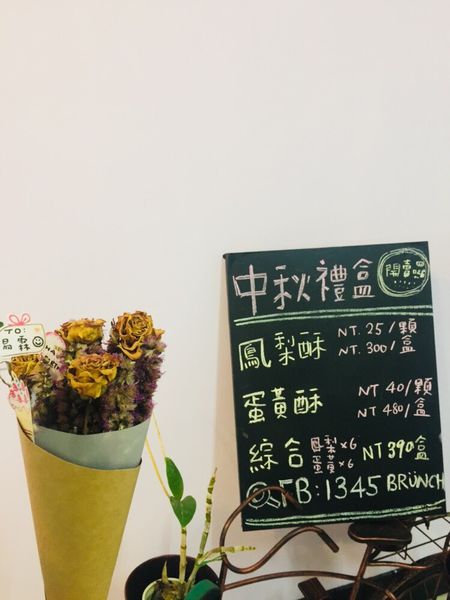 中秋禮盒
開賣
鳳梨酥 NT. 25/顆
NT. 300/盒
蛋黃酥 NT 40/顆
NT 480/盒
綜合 鳳梨x6 NT 390盒
蛋黃x6
FB: 1345 BRUNCH
TO: